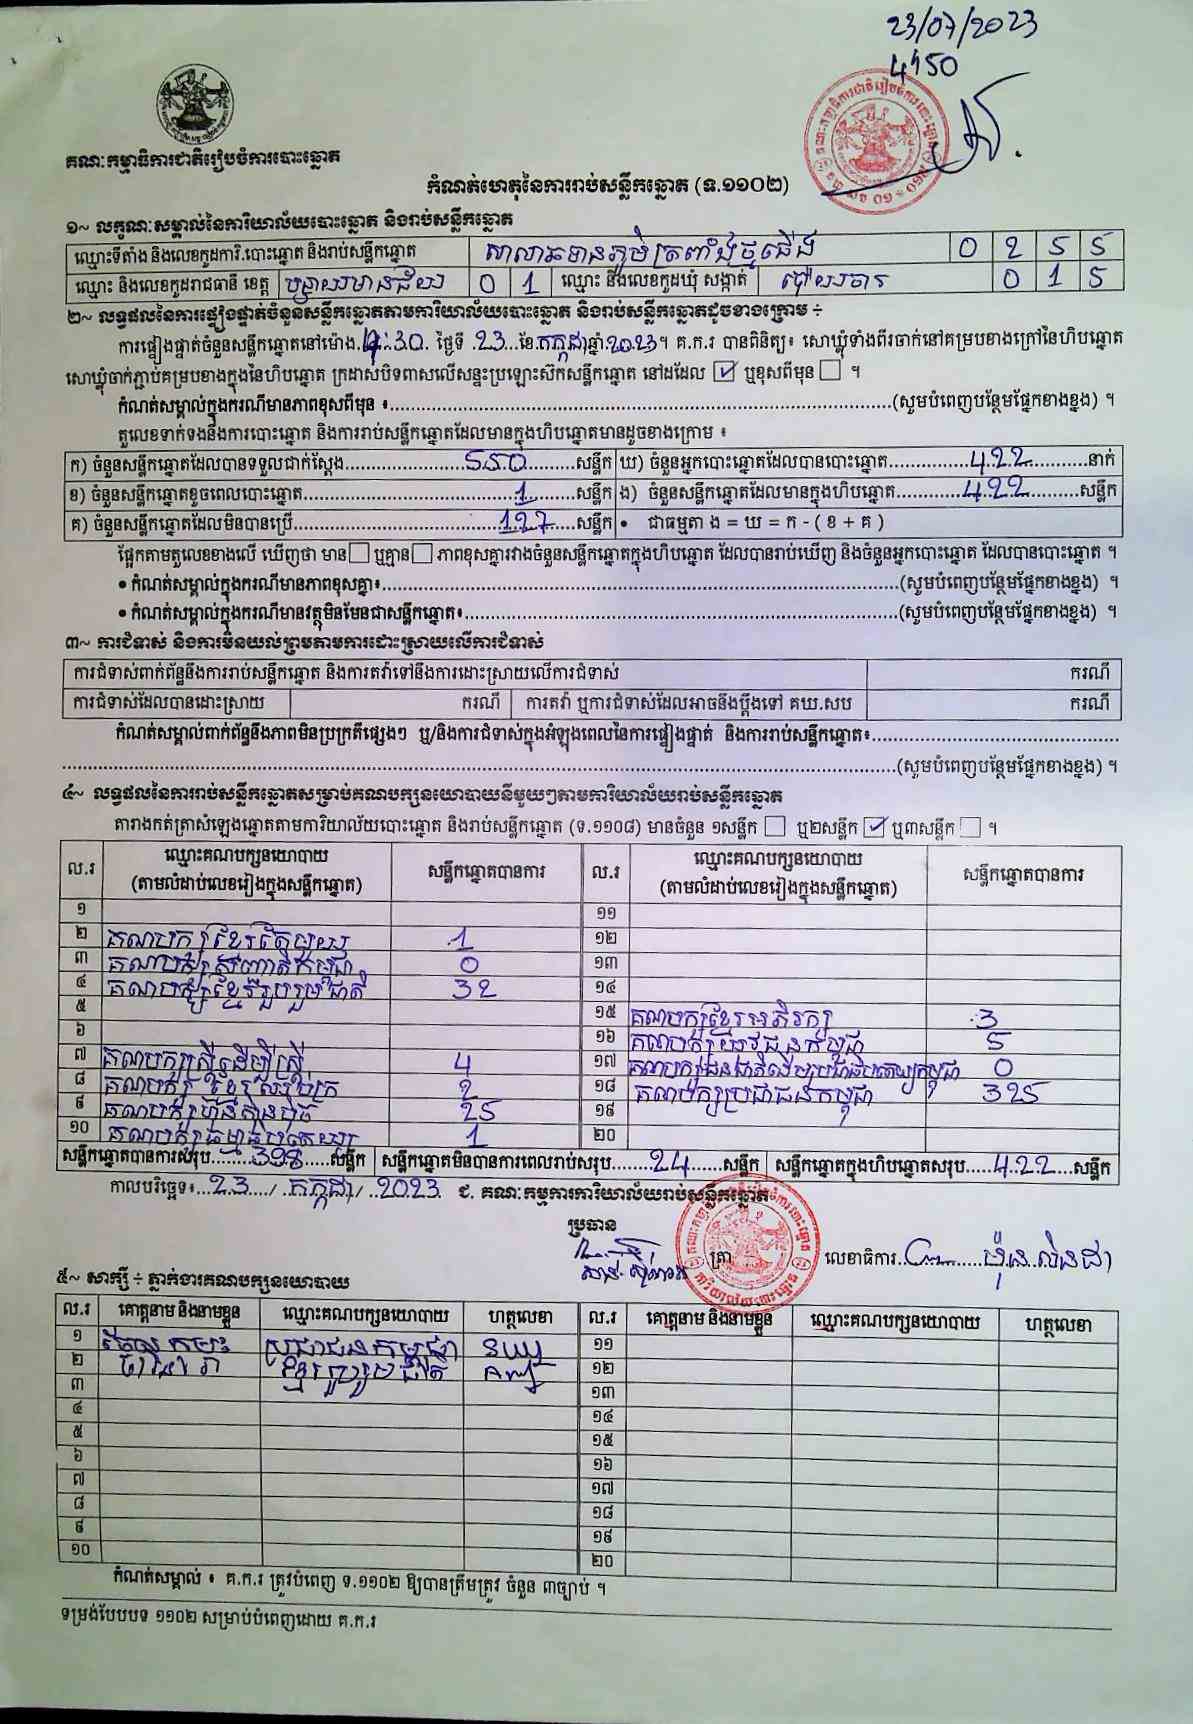 23/07/2023
4h50
គណៈកម្មាធិការជាតិរៀបចំការបោះឆ្នោត
កំណត់ហេតុនៃការរាប់សន្លឹកឆ្នោត (ទ.១១០២)
១~ លក្ខណៈសម្គាល់នៃការិយាល័យបោះឆ្នោត និងរាប់សន្លឹកឆ្នោត
ឈ្មោះទីតាំង និងលេខកូដការិ.បោះឆ្នោត និងរាប់សន្លឹកឆ្នោត សាលាឆទានភូមិត្រពាំងថ្មជើង 0 2 5 5
ឈ្មោះ និងលេខកូដរាជធានី ខេត្ត បន្ទាយមានជ័យ 0 1 ឈ្មោះ និងលេខកូដឃុំ សង្កាត់ ប៉ោយចារ 0 1 5
២~ លទ្ធផលនៃការផ្ទៀងផ្ទាត់ចំនួនសន្លឹកឆ្នោតតាមការិយាល័យបោះឆ្នោត និងរាប់សន្លឹកឆ្នោតដូចខាងក្រោម ÷
ការផ្ទៀងផ្ទាត់ចំនួនសន្លឹកឆ្នោតនៅម៉ោង :30 ថ្ងៃទី 23 ខែ កក្កដា ឆ្នាំ 2023 ។ គ.ក.រ បានពិនិត្យ៖ សោឃ្លុំទាំងពីរចាក់នៅគម្របខាងក្រៅនៃហិបឆ្នោត
សោឃ្លុំចាក់ភ្ជាប់គម្របខាងក្នុងនៃហិបឆ្នោត ក្រដាសបិទពាសលើសន្ទះប្រឡោះស៊កសន្លឹកឆ្នោត នៅដដែល ☑ ឬខុសពីមុន ☐ ។
កំណត់សម្គាល់ក្នុងករណីមានភាពខុសពីមុន ៖........(សូមបំពេញបន្ថែមផ្នែកខាងខ្នង) ។
តួលេខទាក់ទងនឹងការបោះឆ្នោត និងការរាប់សន្លឹកឆ្នោតដែលមានក្នុងហិបឆ្នោតមានដូចខាងក្រោម ៖
ក) ចំនួនសន្លឹកឆ្នោតដែលបានទទួលជាក់ស្តែង 550 សន្លឹក ឃ) ចំនួនអ្នកបោះឆ្នោតដែលបានបោះឆ្នោត 422 នាក់
ខ) ចំនួនសន្លឹកឆ្នោតខូចពេលបោះឆ្នោត 1 សន្លឹក ង) ចំនួនសន្លឹកឆ្នោតដែលមានក្នុងហិបឆ្នោត 422 សន្លឹក
គ) ចំនួនសន្លឹកឆ្នោតដែលមិនបានប្រើ 127 សន្លឹក • ជាធម្មតា ង = ឃ = ក - ( ខ + គ )
ផ្អែកតាមតួលេខខាងលើ ឃើញថា មាន ☐ ឬគ្មាន ☐ ភាពខុសគ្នារវាងចំនួនសន្លឹកឆ្នោតក្នុងហិបឆ្នោត ដែលបានរាប់ឃើញ និងចំនួនអ្នកបោះឆ្នោត ដែលបានបោះឆ្នោត ។
• កំណត់សម្គាល់ក្នុងករណីមានភាពខុសគ្នា៖........(សូមបំពេញបន្ថែមផ្នែកខាងខ្នង) ។
• កំណត់សម្គាល់ក្នុងករណីមានវត្ថុមិនមែនជាសន្លឹកឆ្នោត៖........(សូមបំពេញបន្ថែមផ្នែកខាងខ្នង) ។
៣~ ការជំទាស់ និងការមិនយល់ព្រមតាមការដោះស្រាយលើការជំទាស់
ការជំទាស់ពាក់ព័ន្ធនឹងការរាប់សន្លឹកឆ្នោត និងការតវ៉ាទៅនឹងការដោះស្រាយលើការជំទាស់ ករណី
ការជំទាស់ដែលបានដោះស្រាយ ករណី ការតវ៉ា ឬការជំទាស់ដែលអាចនឹងប្តឹងទៅ គឃ.សប ករណី
កំណត់សម្គាល់ពាក់ព័ន្ធនឹងភាពមិនប្រក្រតីផ្សេងៗ ឬ/និងការជំទាស់ក្នុងអំឡុងពេលនៃការផ្ទៀងផ្ទាត់ និងការរាប់សន្លឹកឆ្នោត៖........
........(សូមបំពេញបន្ថែមផ្នែកខាងខ្នង) ។
៤~ លទ្ធផលនៃការរាប់សន្លឹកឆ្នោតសម្រាប់គណបក្សនយោបាយនីមួយៗតាមការិយាល័យរាប់សន្លឹកឆ្នោត
តារាងកត់ត្រាសំឡេងឆ្នោតតាមការិយាល័យបោះឆ្នោត និងរាប់សន្លឹកឆ្នោត (ទ.១១០៨) មានចំនួន ១សន្លឹក ☐ ឬ២សន្លឹក ☑ ឬ៣សន្លឹក ☐ ។
ល.រ ឈ្មោះគណបក្សនយោបាយ (តាមលំដាប់លេខរៀងក្នុងសន្លឹកឆ្នោត) សន្លឹកឆ្នោតបានការ ល.រ ឈ្មោះគណបក្សនយោបាយ (តាមលំដាប់លេខរៀងក្នុងសន្លឹកឆ្នោត) សន្លឹកឆ្នោតបានការ
១ ១១
២ គណបក្សខ្មែរតែមួយ 1 ១២
៣ គណបក្សសញ្ជាតិកម្ពុជា 0 ១៣
៤ គណបក្សខ្មែររួបរួមជាតិ 32 ១៤
៥ ១៥ គណបក្សខ្មែរអភិរក្ស 3
៦ ១៦ គណបក្សយុវជនកម្ពុជា 5
៧ គណបក្សស្ត្រីដើម្បីស្ត្រី 4 ១៧ គណបក្សជនជាតិដើមប្រជាធិបតេយ្យកម្ពុជា 0
៨ គណបក្ស ខ្មែរ 2 ១៨ គណបក្សប្រជាជនកម្ពុជា 325
៩ គណបក្សហ្វ៊ុនស៊ិនប៉ិច 25 ១៩
១០ គណបក្សធម្មាធិបតេយ្យ 1 ២០
សន្លឹកឆ្នោតបានការសរុប 398 សន្លឹក សន្លឹកឆ្នោតមិនបានការពេលរាប់សរុប 24 សន្លឹក សន្លឹកឆ្នោតក្នុងហិបឆ្នោតសរុប 422 សន្លឹក
កាលបរិច្ឆេទ៖ 23 / កក្កដា / 2023 ជ. គណៈកម្មការការិយាល័យរាប់សន្លឹកឆ្នោត
ប្រធាន
ត្រា លេខាធិការ ម៉ុន លីនដា
៥~ សាក្សី ÷ ភ្នាក់ងារគណបក្សនយោបាយ
ល.រ គោត្តនាម និងនាមខ្លួន ឈ្មោះគណបក្សនយោបាយ ហត្ថលេខា ល.រ គោត្តនាម និងនាមខ្លួន ឈ្មោះគណបក្សនយោបាយ ហត្ថលេខា
១ ប្រជាជនកម្ពុជា ១១
២ ខ្មែររួបរួមជាតិ ១២
៣ ១៣
៤ ១៤
៥ ១៥
៦ ១៦
៧ ១៧
៨ ១៨
៩ ១៩
១០ ២០
កំណត់សម្គាល់ ៖ គ.ក.រ ត្រូវបំពេញ ទ.១១០២ ឱ្យបានត្រឹមត្រូវ ចំនួន ៣ច្បាប់ ។
ទម្រង់បែបបទ ១១០២ សម្រាប់បំពេញដោយ គ.ក.រ